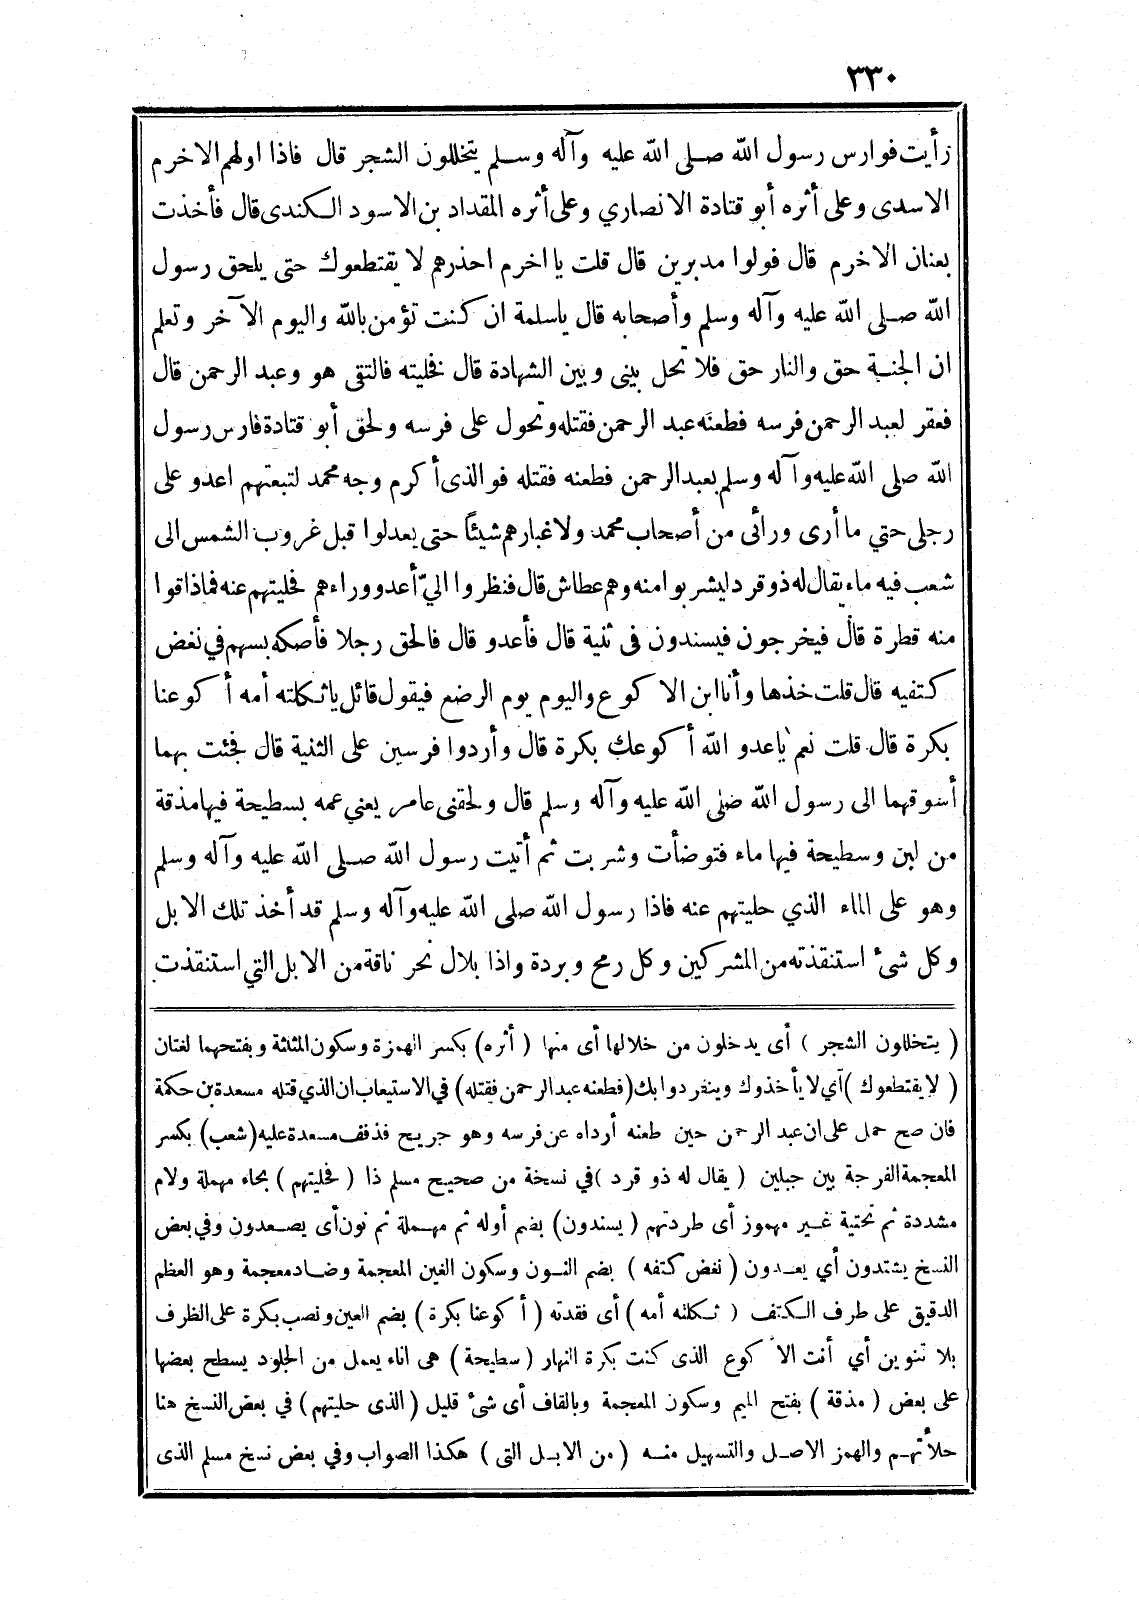 ٣٣٠
رأيت فوارس رسول الله صلى الله عليه وآله وسلم يتخللون الشجر قال فاذا اولهم الاخرم
الاسدى وعلى أثره أبو قتادة الانصاري وعلى أثره المقداد بن الاسود الكندى قال فأخذت
بعنان الاخرم قال فولوا مدبرين قال قلت يا اخرم احذرهم لا يقتطعوك حتى يلحق رسول
الله صلى الله عليه وآله وسلم وأصحابه قال ياسلمة ان كنت تؤمن بالله واليوم الآخر وتعلم
ان الجنة حق والنار حق فلا تحل بينى وبين الشهادة قال فخليته فالتقى هو وعبد الرحمن قال
فعقر لعبد الرحمن فرسه فطعنه عبد الرحمن فقتله وتحول على فرسه ولحق أبو قتادة فارس رسول
الله صلى الله عليه وآله وسلم بعبد الرحمن فطعنه فقتله فوالذى أكرم وجه محمد لتبعتهم اعدو على
رجلى حتي ما أرى ورائى من أصحاب محمد ولا غبارهم شيئاً حتى يعدلوا قبل غروب الشمس الى
شعب فيه ماء يقال له ذو قرد ليشربوا منه وهم عطاش قال فنظروا اليّ أعدو وراءهم فحليتهم عنه فماذاقوا
منه قطرة قال فيخرجون فيسندون فى ثنية قال فأعدو قال فالحق رجلا فأصكه بسهم في نغض
كتفيه قال قلت خذها وأنا ابن الاكوع واليوم يوم الرضع فيقول قائل ياثكلته أمه أكوعنا
بكرة قال قلت نعم ياعدو الله أكوعك بكرة قال وأردوا فرسين على الثنية قال فجئت بهما
أسوقهما الى رسول الله صلى الله عليه وآله وسلم قال ولحقنى عامر يعني عمه بسطيحة فيها مذقة
من لبن وسطيحة فيها ماء فتوضأت وشربت ثم أتيت رسول الله صلى الله عليه وآله وسلم
وهو على الماء الذي حليتهم عنه فاذا رسول الله صلى الله عليه وآله وسلم قد أخذ تلك الابل
وكل شئ استنقذته من المشركين وكل رمح وبردة واذا بلال نحر ناقة من الابل التي استنقذت
( يتخللون الشجر ) أى يدخلون من خلالها أى منها ( أثره ) بكسر الهمزة وسكون المثلثة وبفتحهما لغتان
( لا يقتطعوك ) أي لا يأخذوك وينفردوا بك ( فطعنه عبد الرحمن فقتله ) في الاستيعاب ان الذي قتله مسعدة بن حكمة
فان صح حمل على ان عبد الرحمن حين طعنه أرداه عن فرسه وهو جريح فذفف مسعدة عليه ( شعب ) بكسر
المعجمة الفرجة بين جبلين ( يقال له ذو قرد ) في نسخة من صحيح مسلم ذا ( فحليتهم ) بحاء مهملة ولام
مشددة ثم تحتية غير مهموز أى طردتهم ( يسندون ) بضم أوله ثم مهملة ثم نون أى يصعدون وفي بعض
النسخ يشتدون أي يعدون ( نغض كتفه ) بضم النون وسكون الغين المعجمة وضاد معجمة وهو العظم
الدقيق على طرف الكتف ( ثكلته أمه ) أى فقدته ( أكوعنا بكرة ) بضم العين ونصب بكرة على الظرف
بلا تنوين أي أنت الاكوع الذى كنت بكرة النهار ( سطيحة ) هى اناء يعمل من الجلود يسطح بعضها
على بعض ( مذقة ) بفتح الميم وسكون المعجمة وبالقاف أى شئ قليل ( الذى حليتهم ) في بعض النسخ هنا
حلأتهم والهمز الاصل والتسهيل منه ( من الابل التى ) هكذا الصواب وفي بعض نسخ مسلم الذى